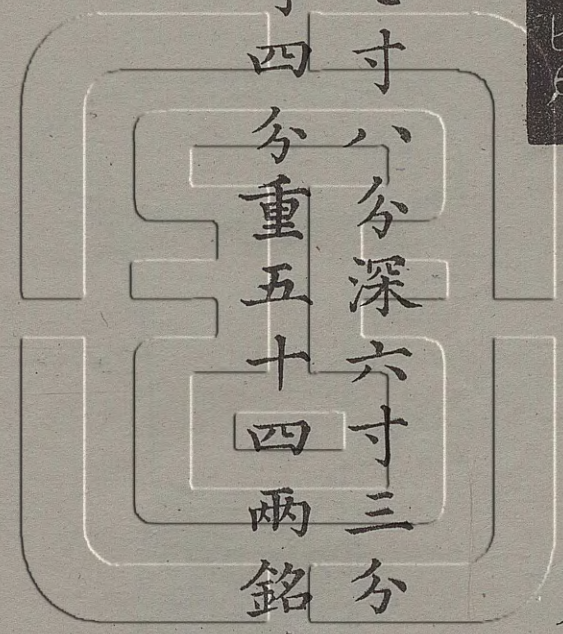 寸八分深六寸三分
四分重五十四兩銘